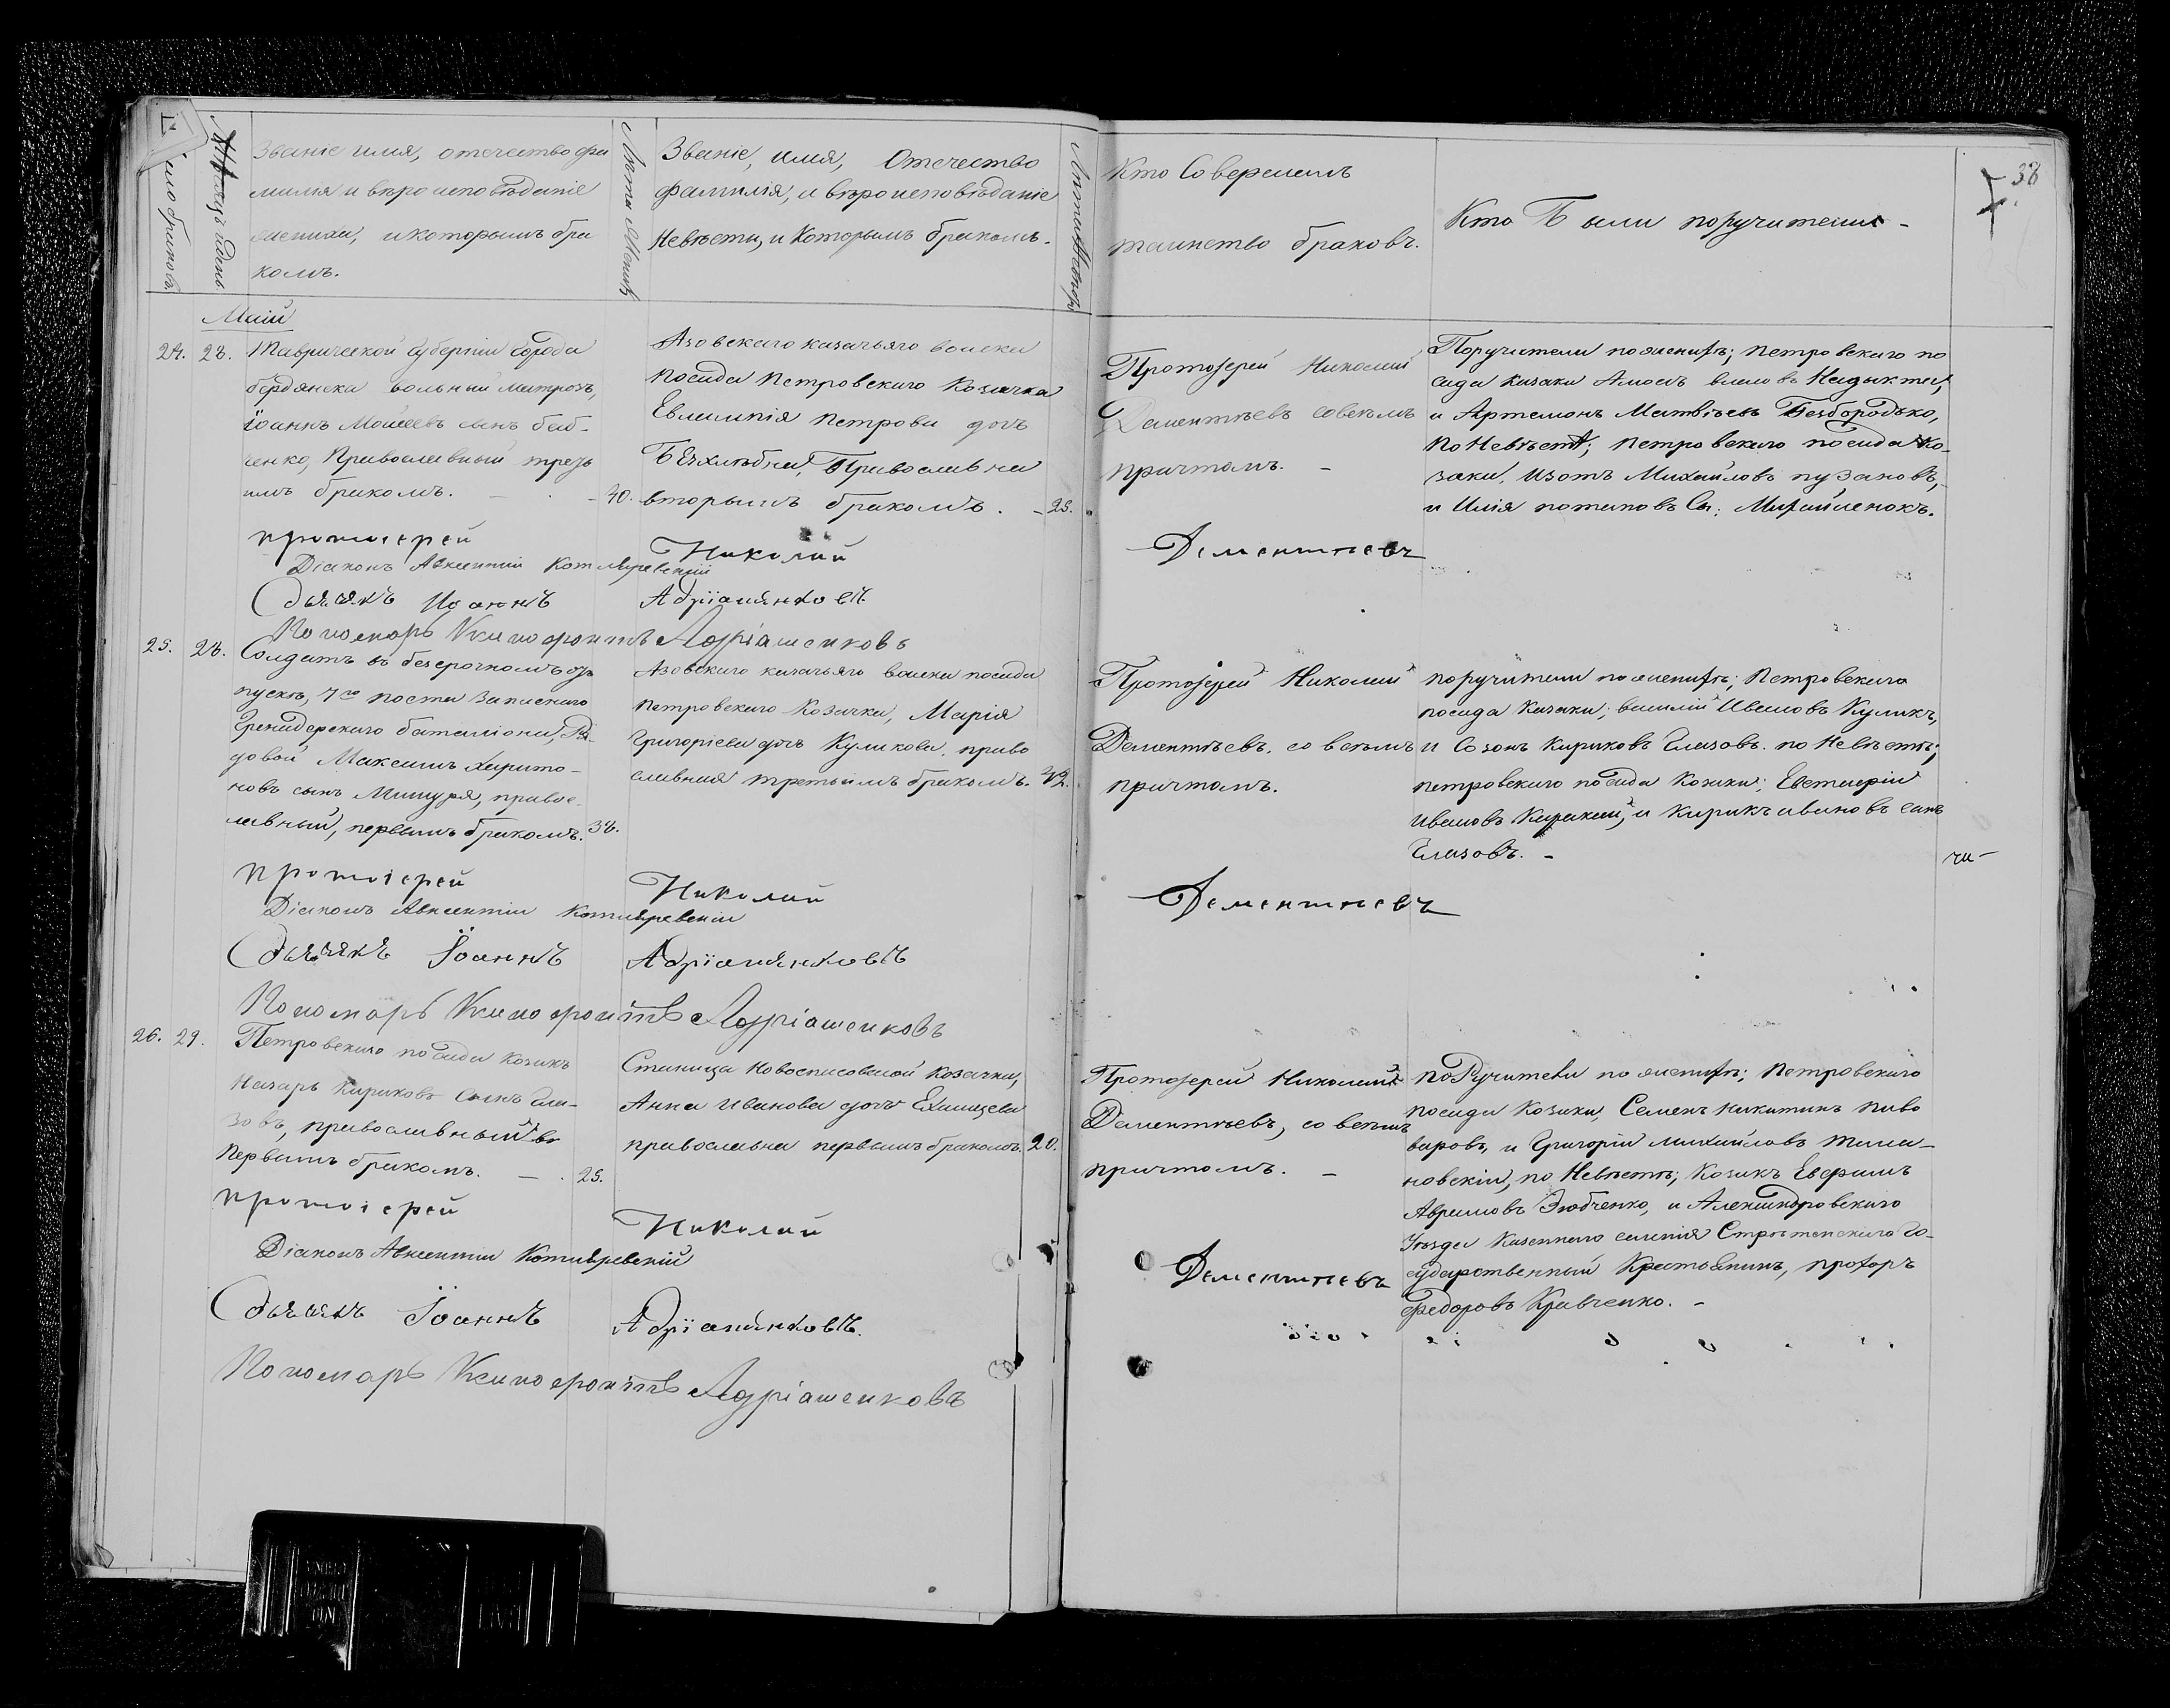 38
Число браковъ.
Мѣсяцъ и день.
Званіе имя, отечество фа
милія и вѣроисповѣданіе
жениха, и которымъ бра
комъ.
Лѣта Жениха
Званіе, имя, Отечество
фамилія, и вѣроисповѣданіе
Невѣсты, и Которымъ бракомъ.
Лѣта Невѣсты
Кто Совершалъ
таинство браковъ.
Кто Были поручители -
Маій
24. 28. Таврической Губерніи Города
бердянска вольный матрозъ,
Іоаннъ Моѵсеевъ сынъ баб-
ченко, Православный треть
имъ бракомъ. - 40.
Азовскаго казачьяго войска
посада Петровскаго Козачка
Евлампія Петрова дочь
Безхлѣбная, Православна
вторымъ бракомъ. - 25.
Протоіерей Николай
Дементьевъ совсѣмъ
причтомъ. -
Поручители по женихѣ; Петровскаго по
сада казаки
и Артемонъ Матвѣевъ Безбородько,
По Невѣстѣ; Петровскаго посада ко-
заки, Изотъ Михайловъ пузановъ,
и Илія потаповъ Сы: Михайленокъ.
протоіерей Николай Дементьевъ
Діаконъ Авксентій Котляревскій
Дьячекъ Иоаннъ Адріашенковъ
Пономарь Ксенофонтъ Адріашенковъ
25. 28. Солдатъ въ безсрочномъ от
пускѣ, 7го поста Запаснаго
Гренадерскаго баталіона, Ря-
довой Максимъ харито-
новъ сынъ Мишура, правос-
лавный, первымъ бракомъ. 38.
Азовскаго казачьяго войска посада
Петровскаго Козачка, Марія
Григоріева дочь Куликова, право
славная третьимъ бракомъ. 42.
Протоіерей Николай
Дементьевъ. со всѣмъ
причтомъ.
поручители по женихѣ; Петровскаго
посада Казаки; василій Ивановъ Куликъ,
и Созонъ Кириковъ Глазовъ. по Невѣстѣ;
петровскаго посада Козаки; Евстафій
Ивановъ и Кирикъ ивановъ сынъ
Глазовъ. -
протоіерей Николай Дементьевъ
Діаконъ Авксентій Котляревскій
Дьячекъ Іоаннъ Адріашенковъ
Пономарь Ксенофонтъ Адріашенковъ
26. 29. Петровскаго посада Козакъ
Назаръ Кириковъ Сынъ Гла-
зовъ, православный
первымъ бракомъ. - 25.
Станица Новоспасовской Козачка,
Анна Иванова дочь
православна первымъ бракомъ. 20.
Протоіерей Николай
Дементьевъ, со всѣмъ
причтомъ. -
поручители по женихѣ; Петровскаго
посада Козаки, Семенъ никитинъ Пиво
варовъ, и Григорій михайловъ
новскій, по Невѣстѣ; Козакъ Евфимъ
Аврамовъ Зюбченко, и Александровскаго
Уѣзда Казеннаго селенія Стрѣтенскаго Го-
сударственный Крестьянинъ, прохоръ
федоровъ Кравченко. -
протоіерей Николай Дементьевъ
Діаконъ Авксентій Котляревскій
Дьячекъ Іоаннъ Адріашенковъ.
Пономарь Ксенофонтъ Адріашенковъ